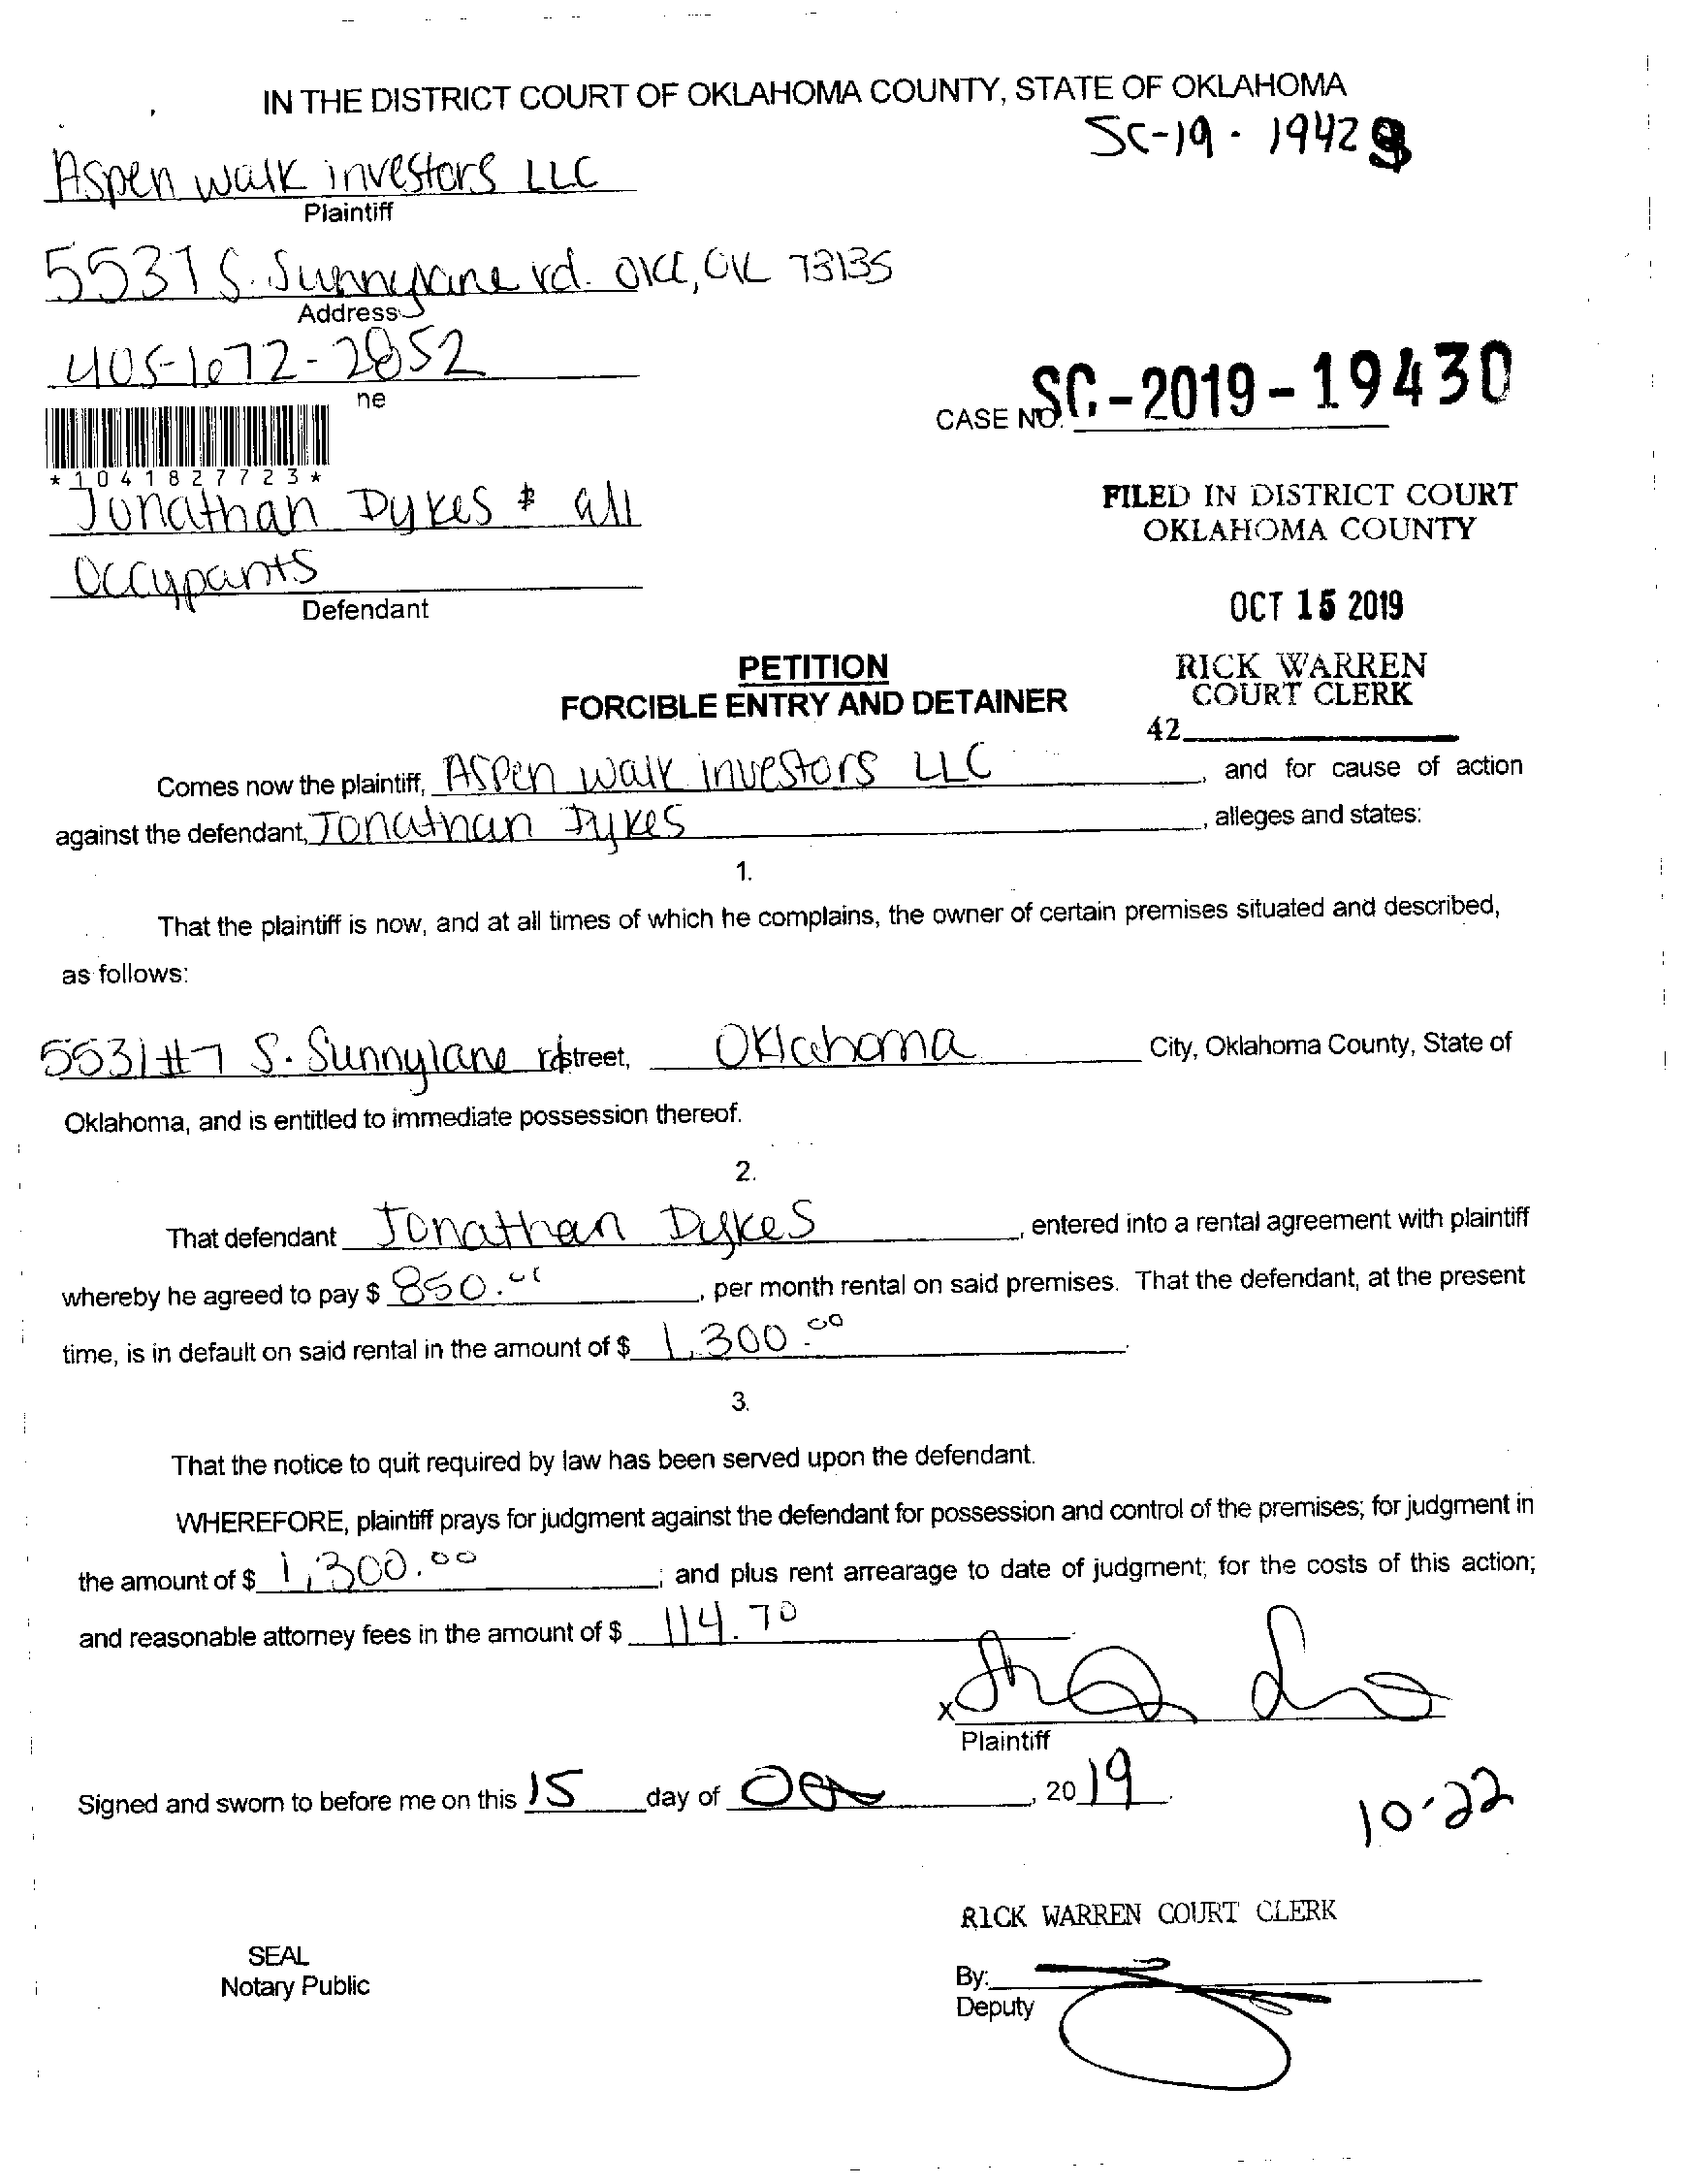 IN THE DISTRICT COURT OF OKLAHOMA COUNTY, STATE OF OKLAHOMA
SC-19 - 1942
Aspen walk investors LLC
Plaintiff
5537 S. Sunnylane rd. OKC, OK 73135
Address
405-672-2852
ne
CASE NO. SC-2019-19430
*1041827723*
Jonathan Dykes & all
Occupants
Defendant
FILED IN DISTRICT COURT
OKLAHOMA COUNTY
OCT 15 2019
PETITION
FORCIBLE ENTRY AND DETAINER
RICK WARREN
COURT CLERK
42
Comes now the plaintiff, Aspen walk investors LLC, and for cause of action
against the defendant, Jonathan Dykes, alleges and states:
1.
That the plaintiff is now, and at all times of which he complains, the owner of certain premises situated and described,
as follows:
5531#7 S. Sunnylane rd street, Oklahoma City, Oklahoma County, State of
Oklahoma, and is entitled to immediate possession thereof.
2.
That defendant Jonathan Dykes, entered into a rental agreement with plaintiff
whereby he agreed to pay $ 850.00, per month rental on said premises. That the defendant, at the present
time, is in default on said rental in the amount of $ 1,300.00.
3.
That the notice to quit required by law has been served upon the defendant.
WHEREFORE, plaintiff prays for judgment against the defendant for possession and control of the premises; for judgment in
the amount of $ 1,300.00; and plus rent arrearage to date of judgment; for the costs of this action;
and reasonable attorney fees in the amount of $ 114.70
x
Plaintiff
Signed and sworn to before me on this 15 day of Oct, 2019.
10-22
RICK WARREN COURT CLERK
SEAL
Notary Public
By:
Deputy